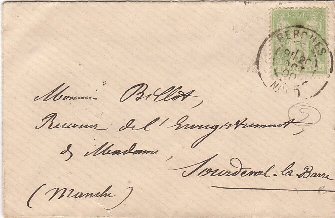 BERGUES
Monsieur Billot,
Receveur de l'Enregistrement,
& Madame,
Sourdeval-la-Barre
(Manche)